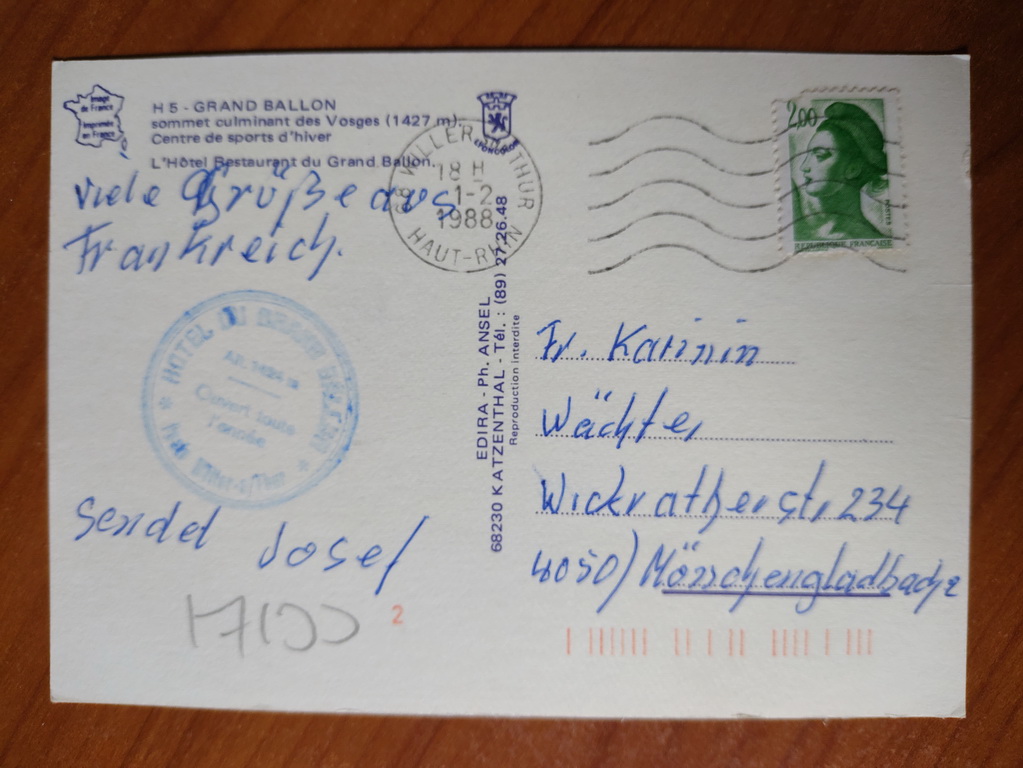 Image
de France
Imprimée
en France
H 5 - GRAND BALLON
sommet culminant des Vosges (1427 m).
Centre de sports d'hiver
L'Hôtel Restaurant du Grand Ballon.
viele Grüße aus
Frankreich.
HOTEL DU GRAND BALLON
Alt. 1424 m
Ouvert toute
l'année
Willer-s/Thur
sendet Josef
2
68 WILLER SUR THUR
18 H
1-2
1988
HAUT-RHIN
EDIRA - Ph. ANSEL
68230 KATZENTHAL - Tél. : (89) 27.26.48
Reproduction interdite
2,00
POSTES
REPUBLIQUE FRANCAISE
Fr. Karinin
Wächter
Wickratherstr 234
4050) Mönchengladbach 2